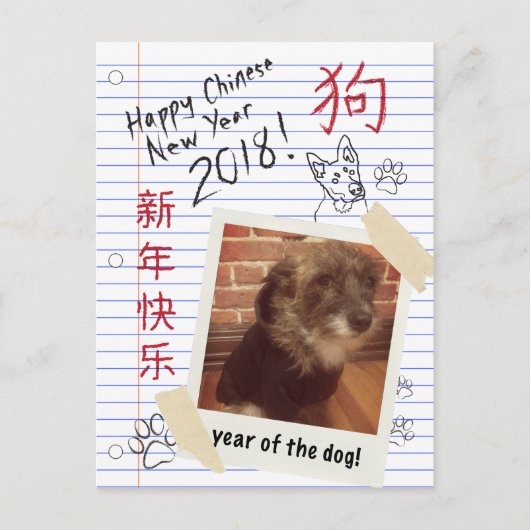 Happy Chinese
New Year
2018!
狗
新年快乐
year of the dog!